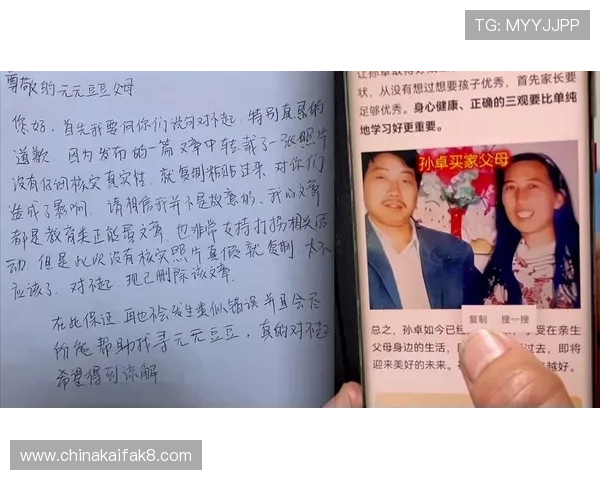 TG: MYYJJPP
尊敬的元元豆豆父母
您好,首先我要向你们说句对不起,特别真恳的
道歉,因为发布的一篇文章中转载了一张照片
没有仔细核实真实性,就复制粘贴过来,对你们
造成了影响,请相信我并不是故意的,我的文章
都是教育类正能量文章,也非常支持打拐相关活
动,但是此次没有核实照片真假就复制,太不
应该了,对不起,现已删除该文章.
在此保证,再也不会发生类似错误并且会尽
所能帮助找寻元元豆豆,真的对不起
希望得到谅解
状,从没有想过想要孩子优秀,首先家长要
足够优秀。身心健康、正确的三观要比单纯
地学习好更重要。
孙卓买家父母
复制 搜一搜
总之,孙卓如今已经 享受在亲生
父母身边的生活, 过去,即将
迎来美好的未来。 越好。
www.chinakaifak8.com